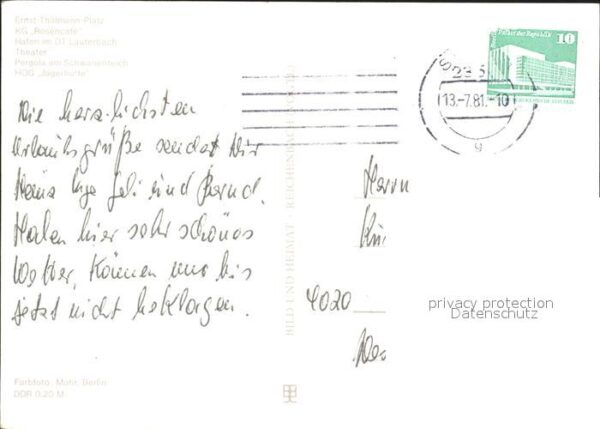 Ernst-Thälmann-Platz
KG „Rosencafé"
Hafen im OT Lauterbach
Theater
Pergola am Schwanenteich
HOG „Jägerhütte"
Die herzlichsten
Urlaubsgrüße sendet Dir
Inge und Bernd.
Haben hier sehr schönes
Wetter, können uns bis
jetzt nicht beklagen.
Farbfoto: Mohr, Berlin
DDR 0,20 M
BILD UND HEIMAT · REICHENBACH
Palast der Republik
10
13.-7.81.-10
g
Herrn
4020
privacy protection
Datenschutz